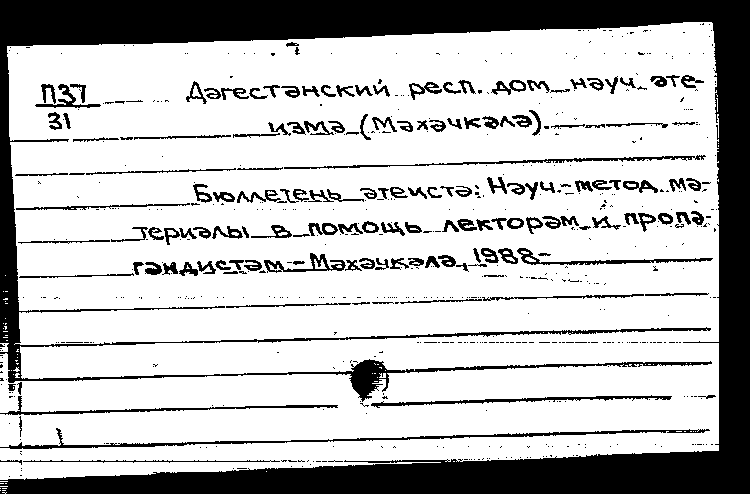 П37
31
Дагестанский респ. дом науч. ате-
изма (Махачкала).
Бюллетень атеиста: Науч.-метод. ма-
териалы в помощь лекторам и пропа-
гандистам.-Махачкала, 1988-